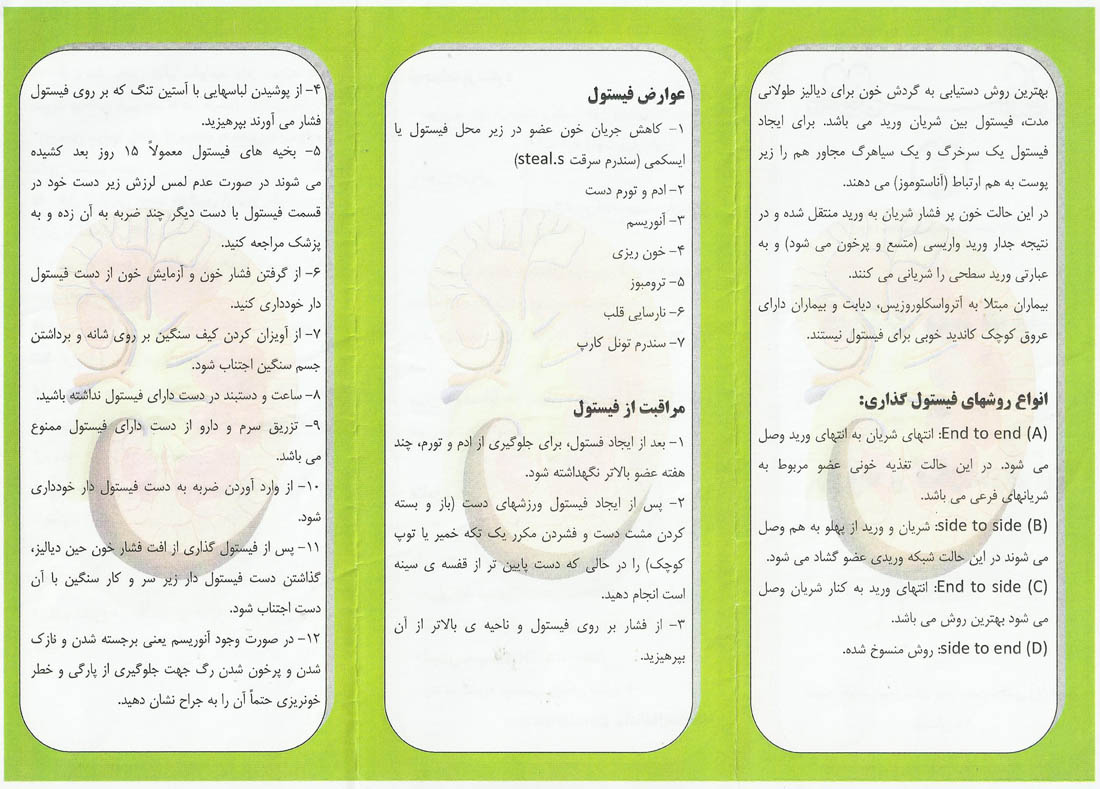 بهترین روش دستیابی به گردش خون برای دیالیز طولانی
مدت، فیستول بین شریان ورید می باشد. برای ایجاد
فیستول یک سرخرگ و یک سیاهرگ مجاور هم را زیر
پوست به هم ارتباط (آناستوموز) می دهند.
در این حالت خون پر فشار شریان به ورید منتقل شده و در
نتیجه جدار ورید واریسی (متسع و پرخون می شود) و به
عبارتی ورید سطحی را شریانی می کنند.
بیماران مبتلا به آترواسکلوروزیس، دیابت و بیماران دارای
عروق کوچک کاندید خوبی برای فیستول نیستند.
انواع روشهای فیستول گذاری:
(A) End to end: انتهای شریان به انتهای ورید وصل
می شود. در این حالت تغذیه خونی عضو مربوط به
شریانهای فرعی می باشد.
(B) side to side: شریان و ورید از پهلو به هم وصل
می شوند در این حالت شبکه وریدی عضو گشاد می شود.
(C) End to side: انتهای ورید به کنار شریان وصل
می شود بهترین روش می باشد.
(D) side to end: روش منسوخ شده.
عوارض فیستول
۱- کاهش جریان خون عضو در زیر محل فیستول یا
ایسکمی (سندرم سرقت steal.s)
۲- ادم و تورم دست
۳- آنوریسم
۴- خون ریزی
۵- ترومبوز
۶- نارسایی قلب
۷- سندرم تونل کارپ
مراقبت از فیستول
۱- بعد از ایجاد فستول، برای جلوگیری از ادم و تورم، چند
هفته عضو بالاتر نگهداشته شود.
۲- پس از ایجاد فیستول ورزشهای دست (باز و بسته
کردن مشت دست و فشردن مکرر یک تکه خمیر یا توپ
کوچک) را در حالی که دست پایین تر از قفسه ی سینه
است انجام دهید.
۳- از فشار بر روی فیستول و ناحیه ی بالاتر از آن
بپرهیزید.
۴- از پوشیدن لباسهایی با آستین تنگ که بر روی فیستول
فشار می آورند بپرهیزید.
۵- بخیه های فیستول معمولاً ۱۵ روز بعد کشیده
می شوند در صورت عدم لمس لرزش زیر دست خود در
قسمت فیستول با دست دیگر چند ضربه به آن زده و به
پزشک مراجعه کنید.
۶- از گرفتن فشار خون و آزمایش خون از دست فیستول
دار خودداری کنید.
۷- از آویزان کردن کیف سنگین بر روی شانه و برداشتن
جسم سنگین اجتناب شود.
۸- ساعت و دستبند در دست دارای فیستول نداشته باشید.
۹- تزریق سرم و دارو از دست دارای فیستول ممنوع
می باشد.
۱۰- از وارد آوردن ضربه به دست فیستول دار خودداری
شود.
۱۱- پس از فیستول گذاری از افت فشار خون حین دیالیز،
گذاشتن دست فیستول دار زیر سر و کار سنگین با آن
دست اجتناب شود.
۱۲- در صورت وجود آنوریسم یعنی برجسته شدن و نازک
شدن و پرخون شدن رگ جهت جلوگیری از پارگی و خطر
خونریزی حتماً آن را به جراح نشان دهید.